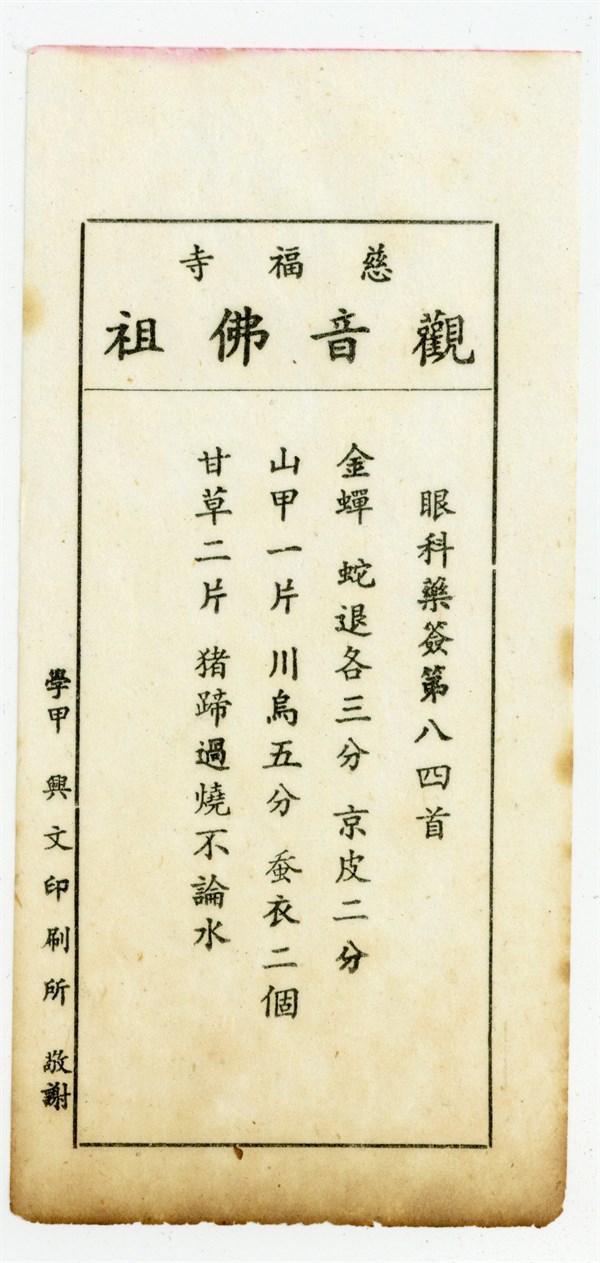 慈福寺
觀音佛祖
眼科藥簽第八四首
金蟬 蛇退各三分 京皮二分
山甲一片 川烏五分 蚕衣二個
甘草二片 猪蹄過燒不論水
學甲 興文印刷所 敬謝